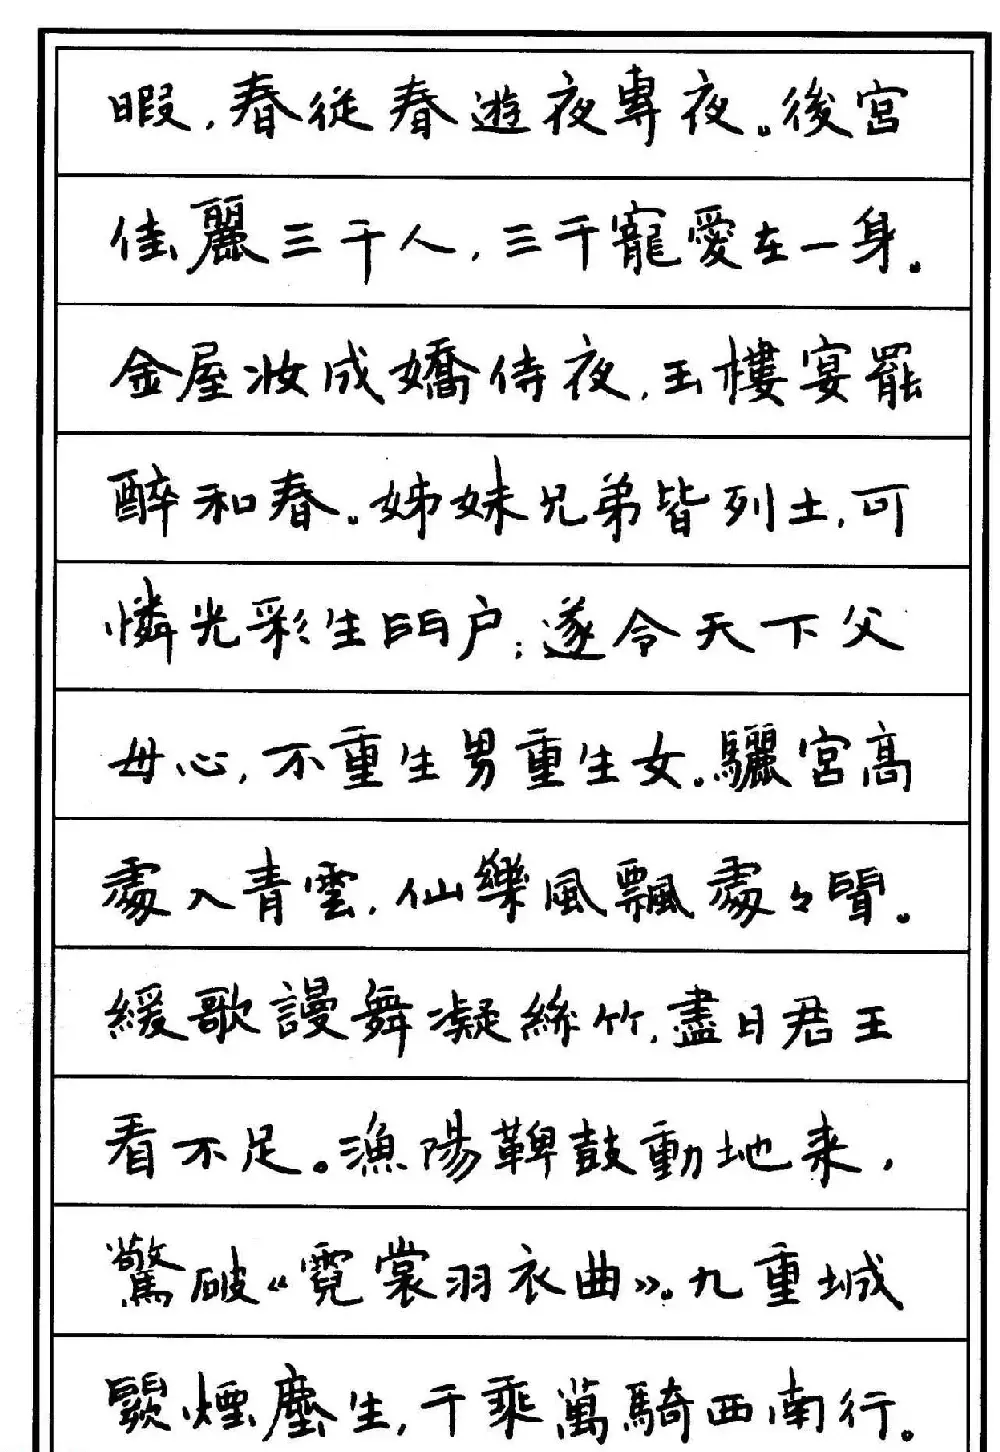 暇，春從春遊夜專夜。後宮
佳麗三千人，三千寵愛在一身。
金屋妝成嬌侍夜，玉樓宴罷
醉和春。姊妹兄弟皆列土，可
憐光彩生門户；遂令天下父
母心，不重生男重生女。驪宮高
處入青雲，仙樂風飄處々聞。
緩歌謾舞凝絲竹，盡日君王
看不足。漁陽鞞鼓動地来，
驚破《霓裳羽衣曲》。九重城
闕煙塵生，千乘萬騎西南行。